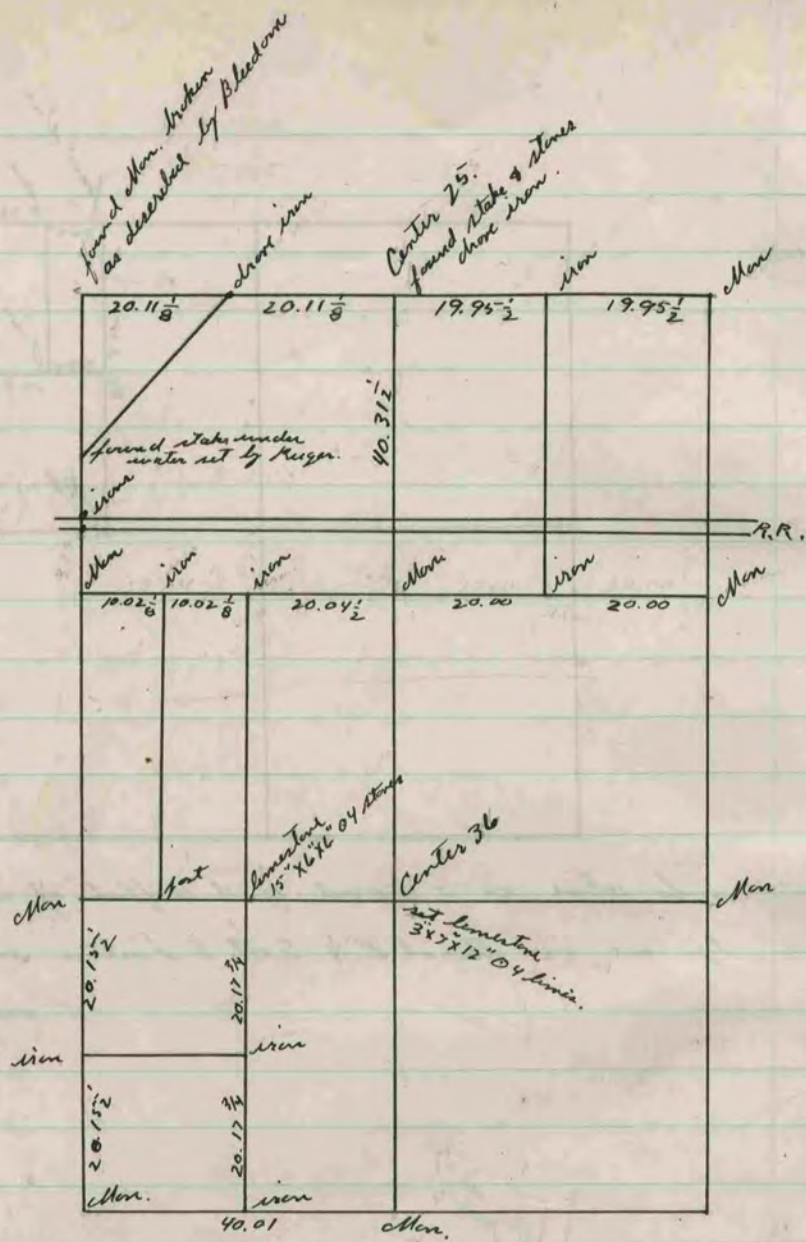 found Mon. broken
as described by Bleedorn
drove iron
Center 25.
found stake & stones
drove iron.
iron
Mon
20.11 1/8
20.11 1/8
19.95 1/2
19.95 1/2
40.31 1/2
found stake under
water set by Kuger.
irons
R.R.
Mon
iron
iron
Mon
iron
Mon
10.02 1/8
10.02 1/8
20.04 1/2
20.00
20.00
limestone
15"x6"x6" @ 4 stones
Center 36
post
Mon
Mon
set limestone
3"x7"x12" @ 4 limes.
20.15 1/2
20.17 3/4
iron
iron
20.15 1/2
20.17 3/4
Mon.
iron
40.01
Mon.